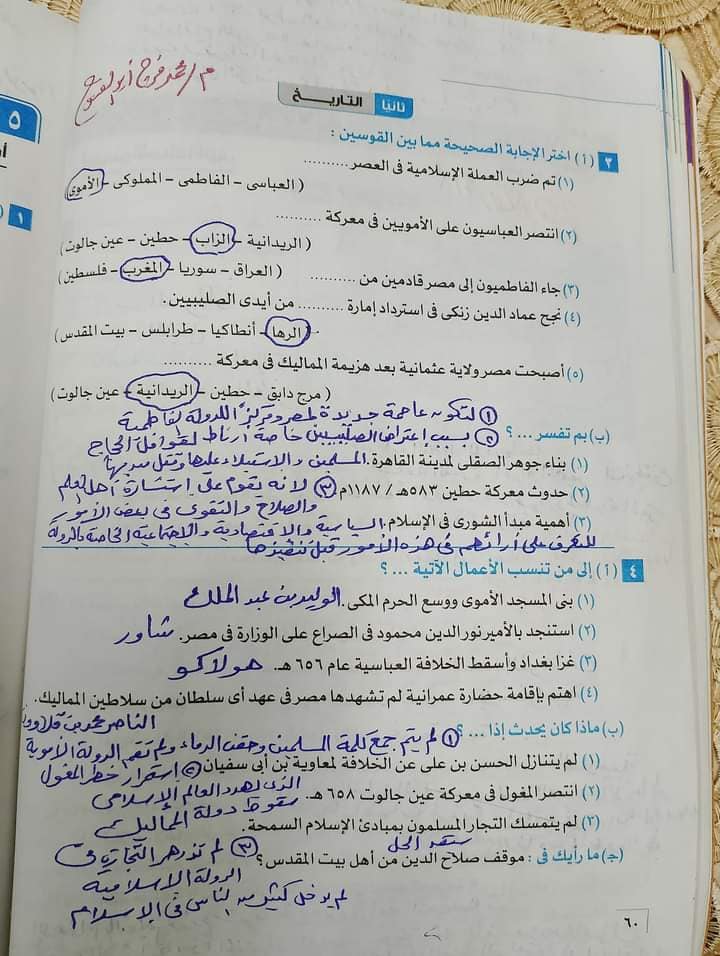 م/ محمد فرج أبو الفتوح
ثانيًا التاريخ
٥
١
٣ (أ) اختر الإجابة الصحيحة مما بين القوسين :
(١) تم ضرب العملة الإسلامية فى العصر ..........
( العباسى - الفاطمى - المملوكى - الأموى )
(٢) انتصر العباسيون على الأمويين فى معركة ..........
( الريدانية - الزاب - حطين - عين جالوت )
(٣) جاء الفاطميون إلى مصر قادمين من ..........
( العراق - سوريا - المغرب - فلسطين )
(٤) نجح عماد الدين زنكى فى استرداد إمارة .......... من أيدى الصليبيين .
( الرها - أنطاكيا - طرابلس - بيت المقدس )
(٥) أصبحت مصر ولاية عثمانية بعد هزيمة المماليك فى معركة ..........
( مرج دابق - حطين - الريدانية - عين جالوت )
① لتكون عاصمة جديدة لمصر ومركزًا للدولة الفاطمية
(ب) بم تفسر ... ؟ ② بسبب إعتراض الصليبيين خاصة أرناط لقوافل الحجاج
(١) بناء جوهر الصقلى لمدينة القاهرة . المسلمين والإستيلاء عليها وقتل من بها
(٢) حدوث معركة حطين ٥٨٣هـ / ١١٨٧م ③ لانه يقوم على إستشارة أهل العلم
والصلاح والتقوى فى بعض الأمور
(٣) أهمية مبدأ الشورى فى الإسلام . السياسية والإقتصادية والإجتماعية الخاصة بالدولة
للتعرف على أرائهم فى هذه الأمور قبل تنفيذها
٤ (أ) إلى من تنسب الأعمال الآتية ... ؟
(١) بنى المسجد الأموى ووسع الحرم المكى . الوليد بن عبد الملك
(٢) استنجد بالأمير نور الدين محمود فى الصراع على الوزارة فى مصر . شاور
(٣) غزا بغداد وأسقط الخلافة العباسية عام ٦٥٦ هـ . هولاكو
(٤) اهتم بإقامة حضارة عمرانية لم تشهدها مصر فى عهد أى سلطان من سلاطين المماليك .
الناصر محمد بن قلاوون
(ب) ماذا كان يحدث إذا ... ؟ ① لم يتم جمع كلمة المسلمين وحقن الدماء ولم تقم الدولة الأموية
(١) لم يتنازل الحسن بن على عن الخلافة لمعاوية بن أبى سفيان ② استمرار خطر المغول
الذى يهدد العالم الإسلامى
(٢) انتصر المغول فى معركة عين جالوت ٦٥٨ هـ . سقوط دولة المماليك
(٣) لم يتمسك التجار المسلمون بمبادئ الإسلام السمحة .
سبق الحل
(ج) ما رأيك فى : موقف صلاح الدين من أهل بيت المقدس ؟ ③ لم تزدهر التجارة فى
الدولة الإسلامية
لم يدخل كثير من الناس فى الإسلام
٦٠